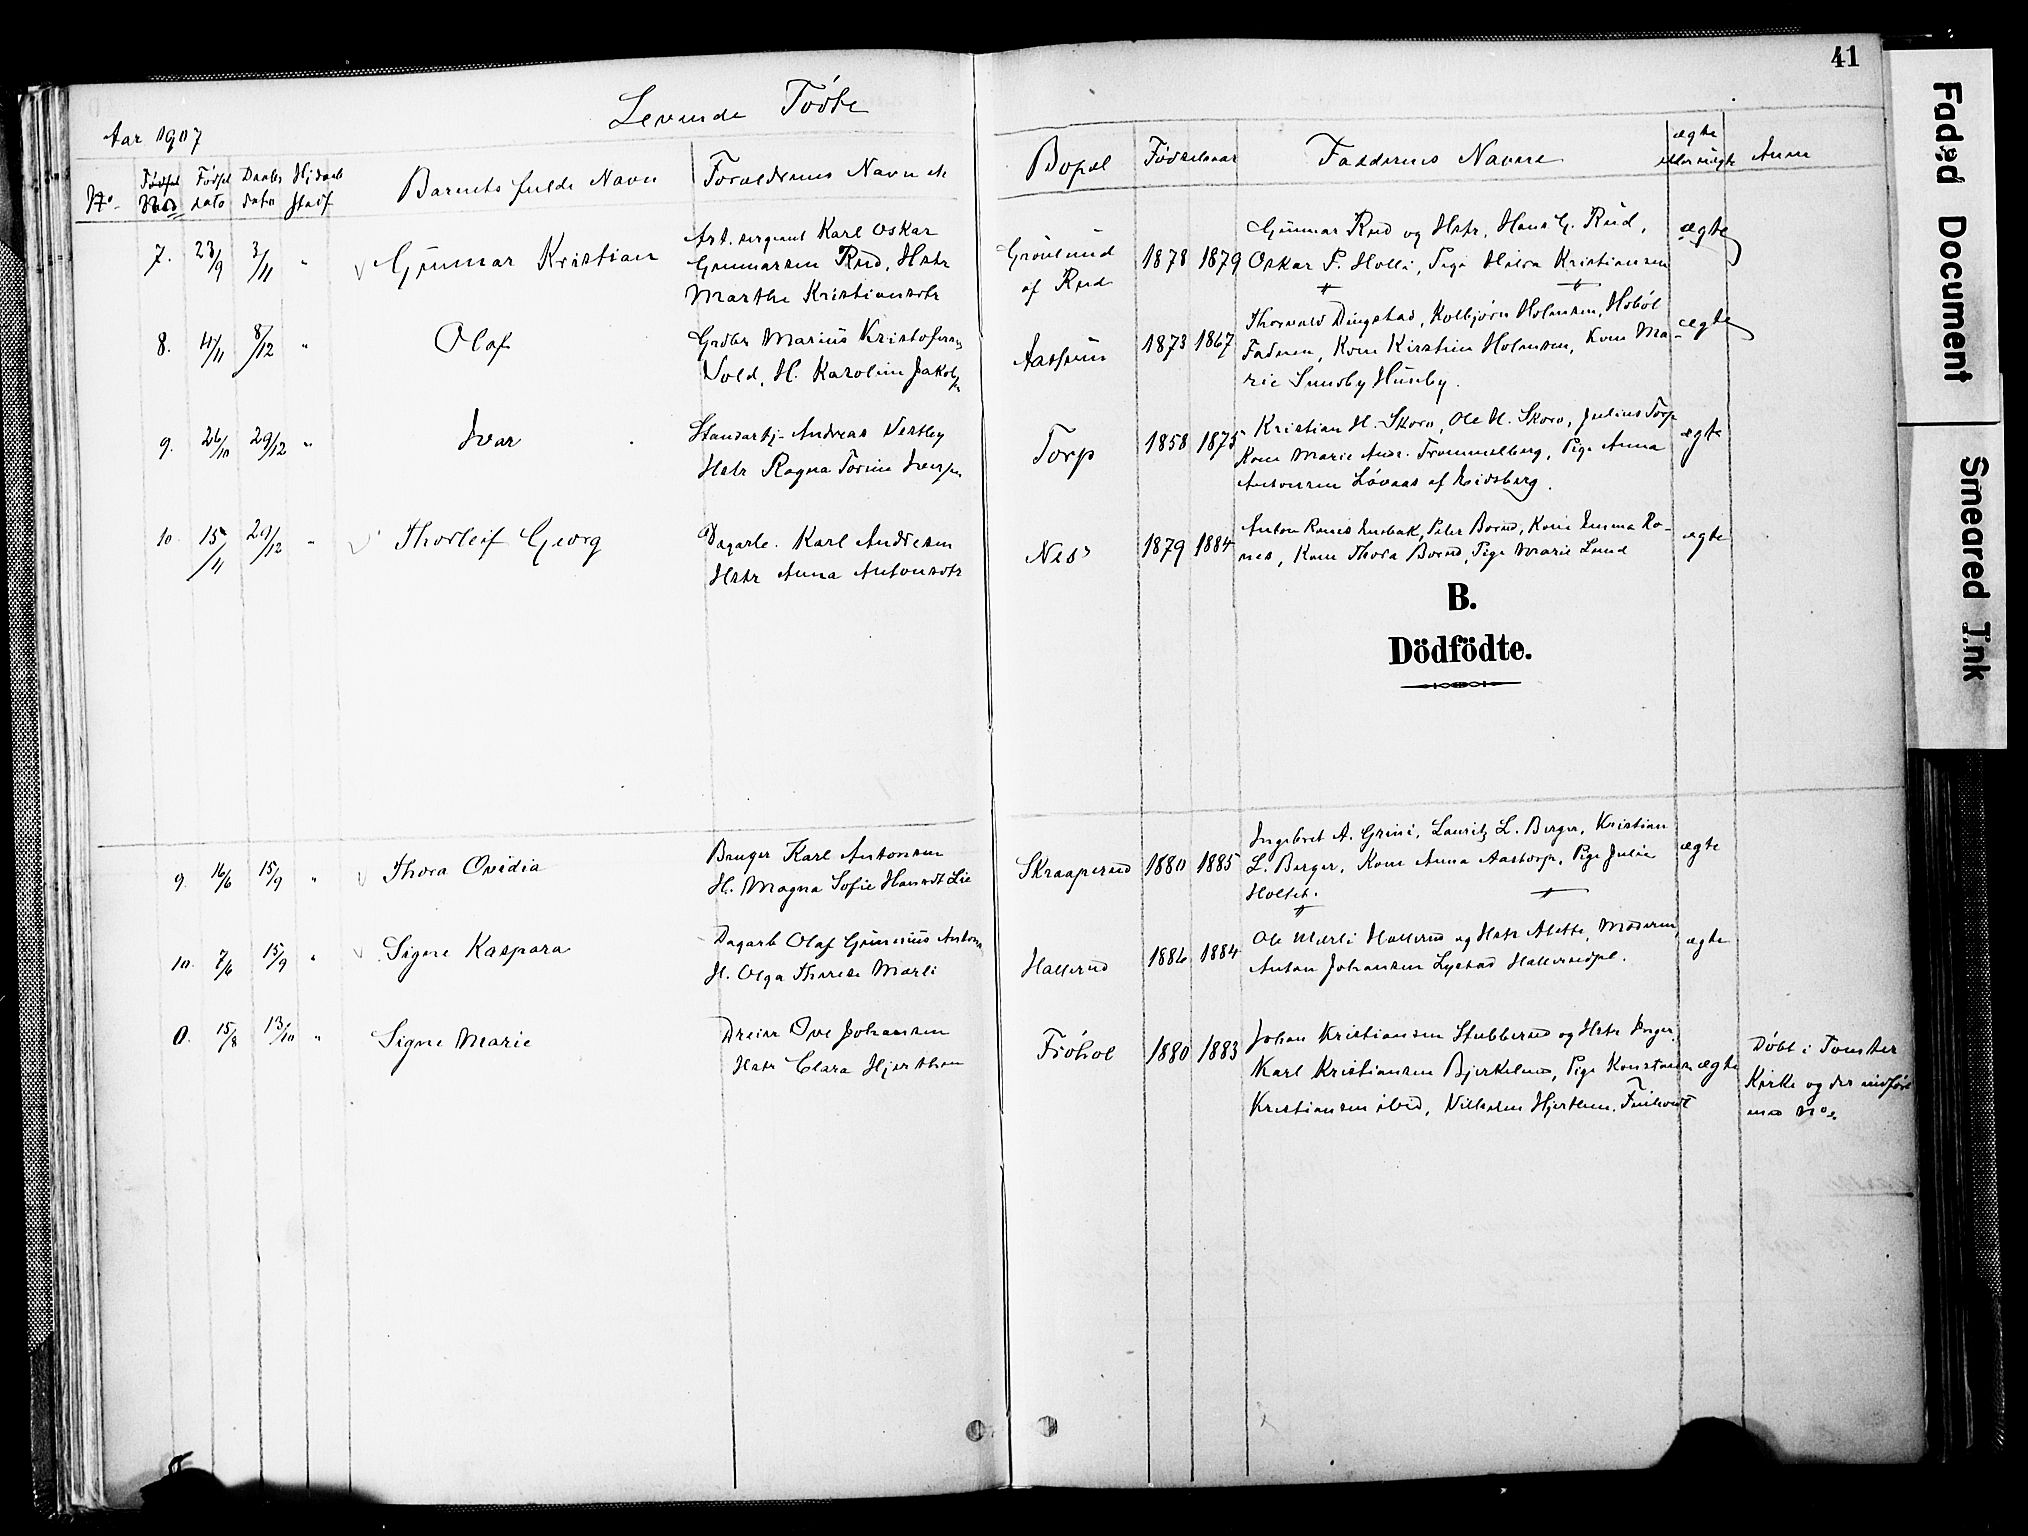 41
Levende Fødte
Aar 1907
No.
Fødsel dato
Daabs dato
Hj daab Stedf
Barnets fulde Navn
Forældrenes Navn
Bopæl
Fødselsaar
Faddernes Navne
ægte eller uægte
Anm
7. 23/9 3/11 " Gunnar Kristian
Art. sergeant Karl Oskar
Gunnarsen Rud, Hstr
Marthe Kristiansdtr
Grønlund
af Rud
1878 1879
Gunnar Rud og Hstr, Hans G. Rud,
Oskar P. Holli, Pige Helva Kristiansen
ægte
8. 4/11 8/12 " Olaf
Gadbr Marius Kristofersen
Vold, H. Karoline Jakobs
Aastrum
1873 1867
Thorvald Dingstad, Kolbjørn Holmsen, Hobøl
Faderen, Kone Kirstine Holmsen, Kone Ma-
rie Sundby Huseby.
ægte
9. 26/10 29/12 " Ivar
Standartj. Andreas Vestby
Hstr Ragna Torine Iversn
Torp
1858 1875
Kristian H. Skoro, Ole H. Skoro, Julius Torp
Kone Marie Andr. Trommelberg, Pige Anna
Antonsen Løvaas af Eidsberg.
ægte
10. 15/11 29/12 " Thorleif Georg
Dagarb. Karl Andresen
Hstr Anna Antonsdtr
Nes
1879 1884
Anton Romes, Peter Borud, Kone Emma Ro-
mes, Kone Thora Borud, Pige Marie Lund
ægte
B.
Dödfödte.
9. 16/6 15/9 " Thora Ovidia
Bruger Karl Antonsen
H. Magna Sofie Hansdt Lie
Skraaperud
1880 1885
Ingebret A. Grini, Lauritz L. Berger, Kristian
L. Berger, Kone Anna Aastorp, Pige Julie
Holtet.
ægte
10. 7/6 15/9 " Signe Kaspara
Dagarb Olaf Gunerius Antons
H. Olga Therese Mørli
Hallerud
1886 1884
Ole Mørli Hallerud og Hstr Alette, Moderen,
Anton Johansen Lystad Hallerudpl.
ægte
0. 15/8 13/10 " Signe Marie
Dreier Ove Johansen
Hstr Clara Hjerthen
Frøhol
1880 1883
Johan Kristiansen Stubberud og Hstr Inger,
Karl Kristiansen Bjerkelund, Pige Konstanse
Kristiansen ibid, Vilhelm Hjerthen,
ægte
Døbt i Tomter
Kirke og der indført
med No
Faded Document
Smeared Ink